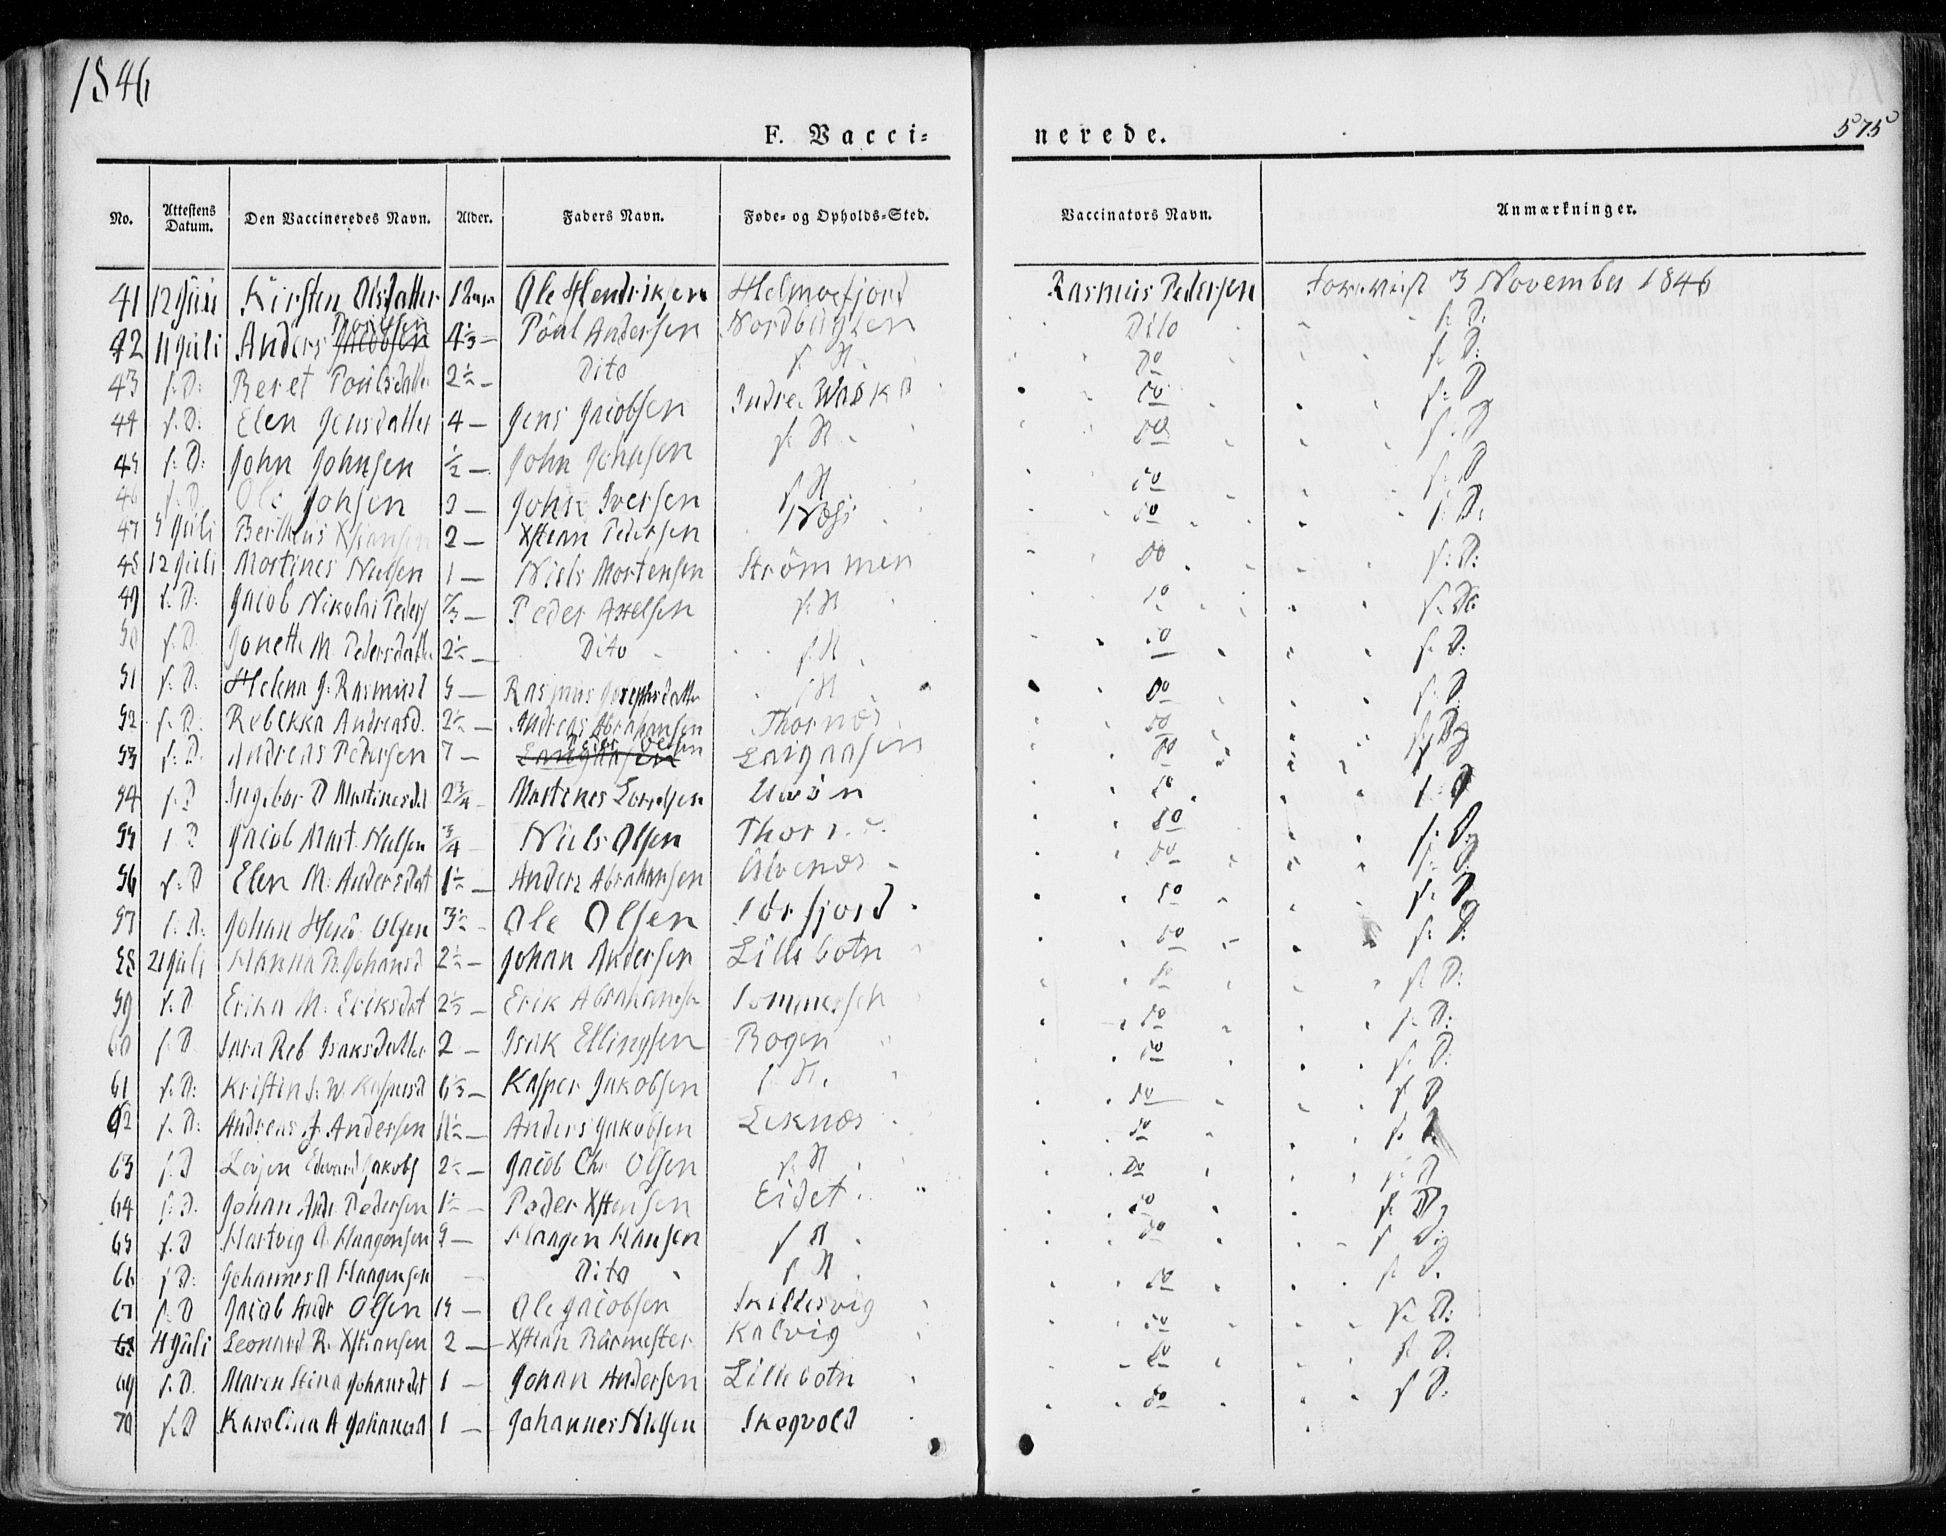 1846
575
F. Vacci= nerede.
No. | Attestens Datum. | Den Vaccineredes Navn. | Alder. | Faders Navn. | Føde- og Opholds-Sted. | Vaccinators Navn. | Anmærkninger.
41 | 12 Juni | Kirsten Olsdatter | 12 | Ole Hendriksen | Helmoefjord | Rasmus Pedersen | 3 November 1846
42 | 11 Juli | Anders Poulsen | 4⅓ — | Poul Andersen | | Dito | s: D:
43 | s: D: | Beret Poulsdatter | 2½ — | Dito | s: St | do | s: D:
44 | s: D: | Elen Jensdatter | 4 — | Jens Jacobsen | Indre | do | s: D
45 | s: D: | John Johnsen | ½ — | John Johnsen | s: St | do | s: D
46 | s: D | Ole Johsen | 3 — | John Iversen | s: St | do | s: D
47 | 5 Juli | Bertheus Xstiansen | 2 — | Xstian Pedersen | Næss | do | s: D:
48 | 12 Juli | Mortines Nielsen | 1 — | Niels Mortensen | Strømmen | do | s: D:
49 | s: D: | Jacob Nikolai Peders | ⅔ — | Peder Axelsen | s: St | do | s: D:
50 | s: D | Joneth M. Pedersdatter | 2½ — | Dito | s: St | do | s: D:
51 | s: D: | Helena J. Rasmusd | 5 — | Rasmus Josephsdatter | s: St | do | s: D
52 | s: D. | Rebekka Andreasd. | 2½ — | Andreas Abrahamsen | Thornæs | do | s: D
53 | s: D. | Andreas Pedersen | 7 — | Peder | Langaasen | do | s: D
54 | s: D | Ingebor D Martinesdat | 2¾ — | Martines | | do | s: D
55 | s: D | Jacob Mart. Nielsen | ¾ | Niels Olsen | | do | s: D
56 | s: D | Elen M. Andersdat | 1½ — | Anders Abrahamsen | | do | s: D
57 | s: D: | Johan Olsen | 3½ - | Ole Olsen | Sørfjord | do | s: D
58 | 21 Juli | Hanna P. Johansd | 2½ — | Johan Andersen | Lillebotn | do | s: D:
59 | s: D | Erika M. Eriksdat | 2⅓ — | Erik Abrahamsen | | do | s: D:
60 | s: D | Sara Reb Isaksdatter | 2 — | Isak Ellingsen | Bogen | do | s: D:
61 | s: D: | Kristin S. W. Kaspersd | 6⅓ — | Kasper Jakobsen | s: St. | do | s: D:
62 | s: D: | Andreas J. Andersen | 11½ — | Anders Jakobsen | Leknæs | do | s: D
63 | s: D | Edvard Jakobs | 2½ — | Jacob Chr Olsen | s: St | do | s: D.
64 | s: D. | Johan Andr. Pedersen | 1½ — | Peder Xstensen | Eidet | do | s: D
65 | s: D | Hartvig A. Haagensen | 9 — | Haagen Hansen | s: St | do | s: D
66 | s: D: | Johannes A Haagensen | — | Dito | s: St | do | s: D
67 | s: D | Jacob Andr Olsen | 14 — | Ole Jacobsen | | do | s: D.
68 | 4 Juli | Leonard R. Xstiansen | 2 — | Xstian Burmester | Kalvig | do | s: D:
69 | s: D. | Maren Stina Johansdat | 1 — | Johan Andersen | Lillebotn | do | s: D:
70 | s: D | Karolina A Johannesd | 1 — | Johannes Nielsen | Skogvold | do | s: D: